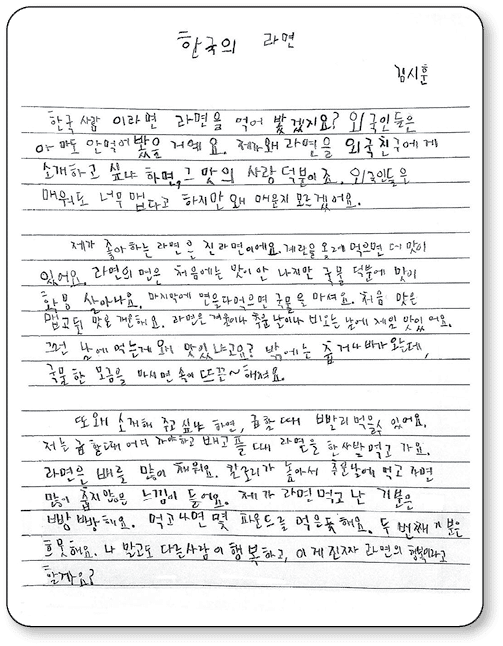 한국의 라면
김시훈
한국 사람 이라면 라면을 먹어 봤겠지요? 외국인들은
아마도 안먹어봤을 거예요. 제가왜 라면을 외국친구에게
소개하고 싶냐 하면, 그 맛의 사랑 덕분이죠. 외국인들은
매워도 너무 맵다고 하지만 왜 매운지 모르겠어요.
제가 좋아하는 라면은 진라면이에요. 계란을 올려먹으면 더 맛이
있어요. 라면의 면은 처음에는 맛이 안 나지만 국물 덕분에 맛이
확 살아나요. 마지막에 면을다먹으면 국물을 마셔요. 처음 맛은
맵고뒤 맛은 개운해요. 라면은 겨울이나 추운날이나 비오는 날에 제일 맛있어요.
그런 날에 먹는게 왜 맛있냐고요? 밖에는 춥거나 비가 오는데,
국물 한 모금을 마시면 속이 뜨끈~ 해져요.
또 왜 소개해 주고 싶냐 하면, 급할 때 빨리 먹을수 있어요.
저는 급할때 어디 가야하고 배고플 때 라면을 한사발 먹고 가요.
라면은 배를 많이 채워요. 칼로리가 높아서 추운날에 먹고 가면
많이 춥지않은 느낌이 들어요. 제가 라면먹고 난 기분은
빵빵해요. 먹고나면 몇 파운드를 먹은듯해요. 두 번째 기분은
흐뭇해요. 나 말고도 다른사람이 행복하고, 이게 진짜 라면의 행복이라고
할까요?